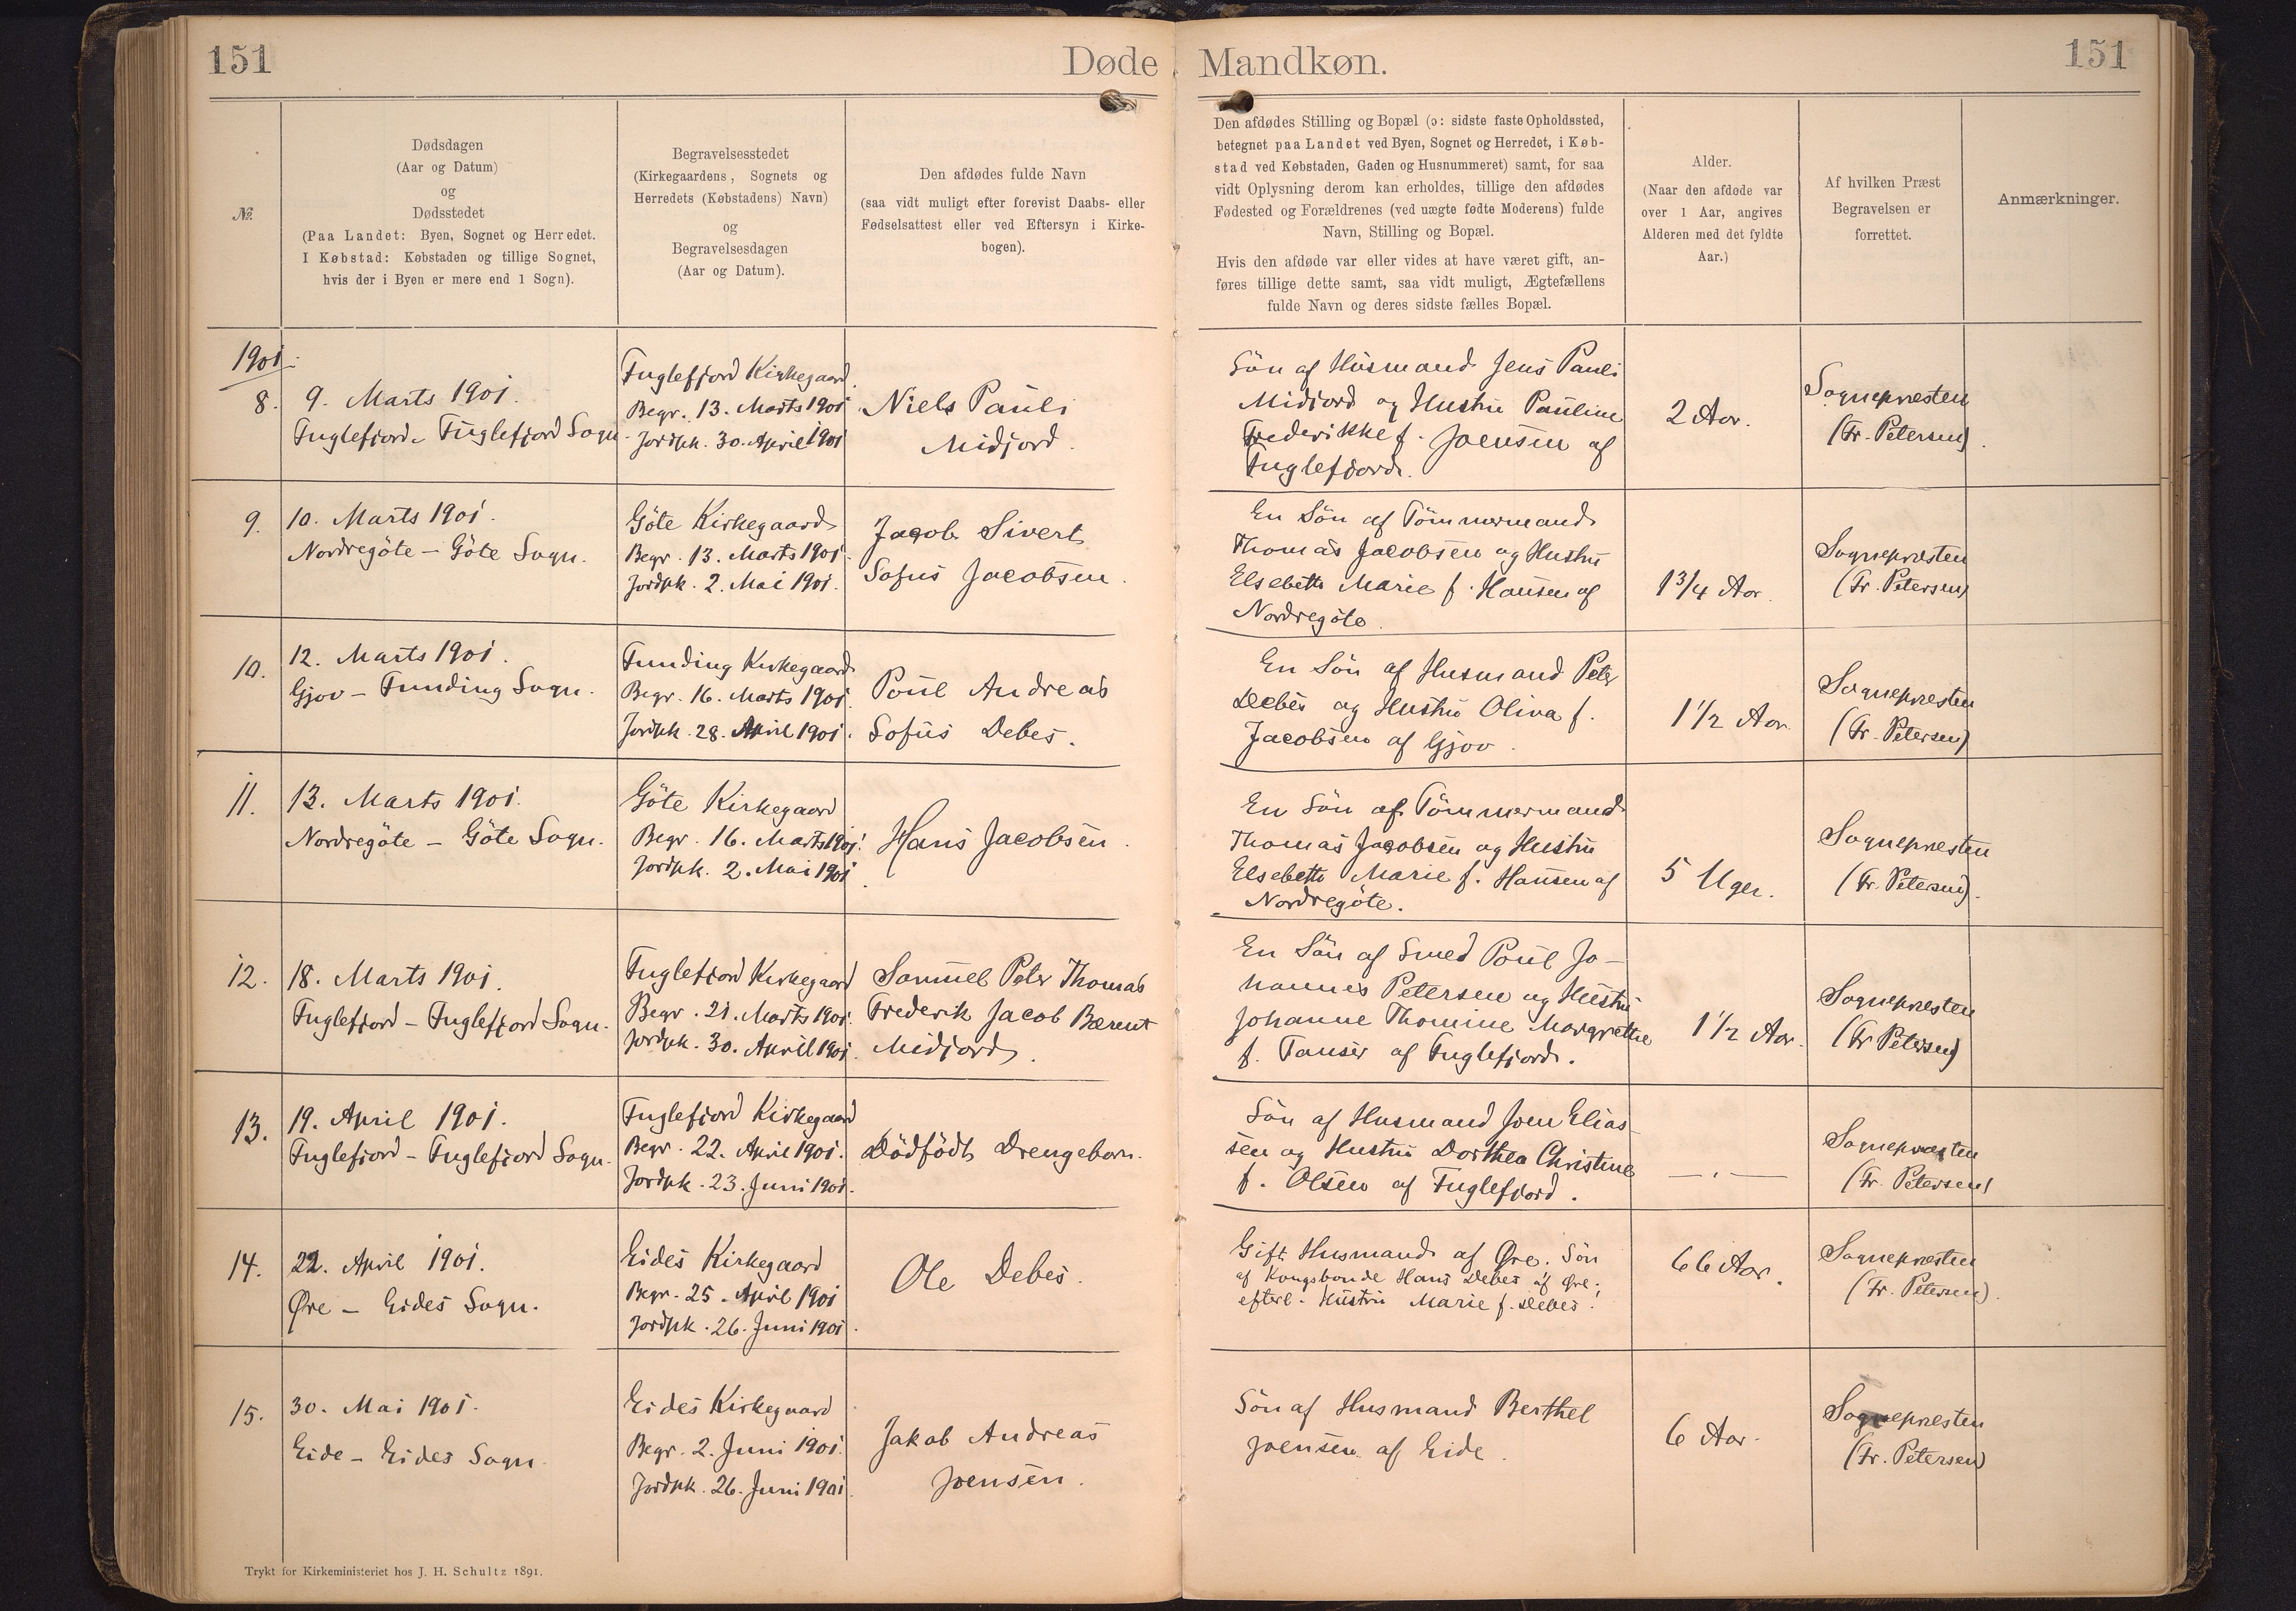 151
Døde
Mandkøn.
151
№
Dødsdagen
(Aar og Datum)
og
Dødsstedet
(Paa Landet: Byen, Sognet og Herredet.
I Købstad: Købstaden og tillige Sognet,
hvis der i Byen er mere end 1 Sogn).
Begravelsesstedet
(Kirkegaardens, Sognets og
Herredets (Købstadens) Navn)
og
Begravelsesdagen
(Aar og Datum).
Den afdødes fulde Navn
(saa vidt muligt efter forevist Daabs- eller
Fødselsattest eller ved Eftersyn i Kirke-
bogen).
Den afdødes Stilling og Bopæl (ɔ: sidste faste Opholdssted,
betegnet paa Landet ved Byen, Sognet og Herredet, i Køb-
stad ved Købstaden, Gaden og Husnummeret) samt, for saa
vidt Oplysning derom kan erholdes, tillige den afdødes
Fødested og Forældrenes (ved uægte fødte Moderens) fulde
Navn, Stilling og Bopæl.
Hvis den afdøde var eller vides at have været gift, an-
føres tillige dette samt, saa vidt muligt, Ægtefællens
fulde Navn og deres sidste fælles Bopæl.
Alder.
(Naar den afdøde var
over 1 Aar, angives
Alderen med det fyldte
Aar.)
Af hvilken Præst
Begravelsen er
forrettet.
Anmærkninger.
1901.
8.
9. Marts 1901.
Fuglefjord - Fuglefjord Sogn.
Fuglefjord Kirkegaard.
Begr. 13. Marts 1901
Jordpk. 30. April 1901
Niels Pauli
Midjord.
Søn af Husmand Jens Pauli
Midjord og Hustru Pauline
Frederikke f. Joensen af
Fuglefjord.
2 Aar.
Sognepresten
(Fr. Petersen).
9.
10. Marts 1901.
Nordregöte - Göte Sogn.
Göte Kirkegaard
Begr. 13. Marts 1901.
Jordpk. 2. Mai 1901.
Jacob Sivert
Sofus Jacobsen.
En Søn af Tömmermand
Thomas Jacobsen og Hustru
Elsebeth Marie f. Hansen af
Nordregöte.
1 3/4 Aar.
Sognepresten
(Fr. Petersen)
10.
12. Marts 1901.
Gjov - Funding Sogn.
Funding Kirkegaard
Begr. 16. Marts 1901.
Jordpk. 28. April 1901.
Poul Andreas
Sofus Debes.
En Søn af Husmand Peter
Debes og Hustru Oliva f.
Jacobsen af Gjov.
1 1/2 Aar.
Sognepresten
(Fr. Petersen)
11.
13. Marts 1901.
Nordregöte - Göte Sogn.
Göte Kirkegaard
Begr. 16. Marts 1901.
Jordpk. 2. Mai 1901.
Hans Jacobsen.
En Søn af Tömmermand
Thomas Jacobsen og Hustru
Elsebeth Marie f. Hansen af
Nordregöte.
5 Uger.
Sognepresten
(Fr. Petersen).
12.
18. Marts 1901.
Fuglefjord - Fuglefjord Sogn.
Fuglefjord Kirkegaard
Begr. 21. Marts 1901.
Jordpk. 30. April 1901.
Samuel Peter Thomas
Frederik Jacob Bærent
Midjord.
En Søn af Smed Poul Jo-
hannes Petersen og Hustru
Johanne Thomine Margrethe
f. Tausen af Fuglefjord.
1 1/2 Aar.
Sognepresten
(Fr Petersen)
13.
19. April 1901.
Fuglefjord - Fuglefjord Sogn.
Fuglefjord Kirkegaard
Begr. 22. April 1901.
Jordpk. 23. Juni 1901.
Dödfödt Drengebarn.
Søn af Husmand Joen Elias-
sen og Hustru Dorthea Christine
f. Olsen af Fuglefjord.
— . —
Sognepresten
(Fr. Petersen)
14.
22. April 1901.
Øre - Eides Sogn.
Eides Kirkegaard
Begr. 25. April 1901
Jordpk. 26. Juni 1901.
Ole Debes.
Gift Husmand af Øre. Søn
af Kongsbonde Hans Debes af Øre;
efterl. Hustru Marie f. Debes.
66 Aar.
Sognepresten
(Fr. Petersen).
15.
30. Mai 1901.
Eide - Eides Sogn.
Eides Kirkegaard
Begr. 2. Juni 1901.
Jordpk. 26. Juni 1901.
Jakob Andreas
Joensen.
Søn af Husmand Berthel
Joensen af Eide.
6 Aar.
Sognepresten
(Fr. Petersen)
Trykt for Kirkeministeriet hos J. H. Schultz 1891.